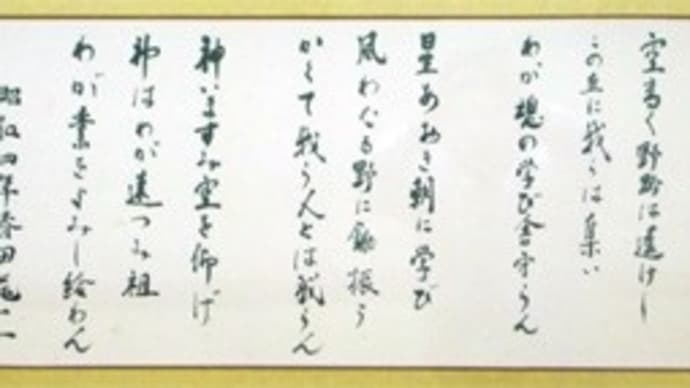 空高く野路は遥けし
この丘に我らは集い
わが魂の学び舎守らん
星あおき朝に学び
風わたる野に鋤振う
かくて我ら人とは成らん
神いますみ空を仰げ
神はわが遠つみ祖
わが業をよみし給わん
昭和四年春田尾一一